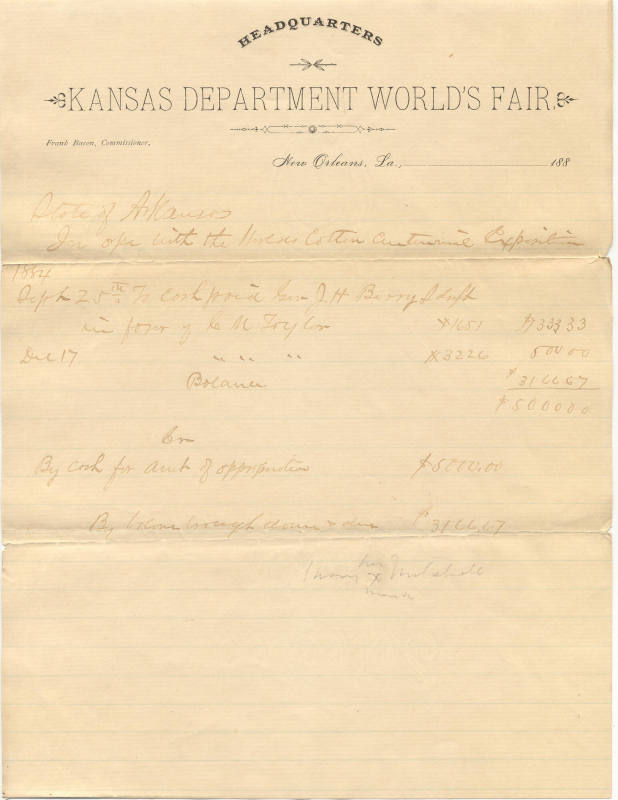 HEADQUARTERS
KANSAS DEPARTMENT WORLD'S FAIR.
Frank Bacon, Commissioner.
New Orleans, La., 188
State of Arkansas
In open with the Worlds Cotton Centennial Exposition
1884
Sept 25th To cash paid Gov J. H Berry draft
in favor of C M Taylor 1651 $1333 33
Dec 17 " " " 3226 500 00
Balance $3166 67
$5000 00
Cr
By cash for amt of appropriation $5000.00
By balance brought down & due $3166.67
his
x
mark